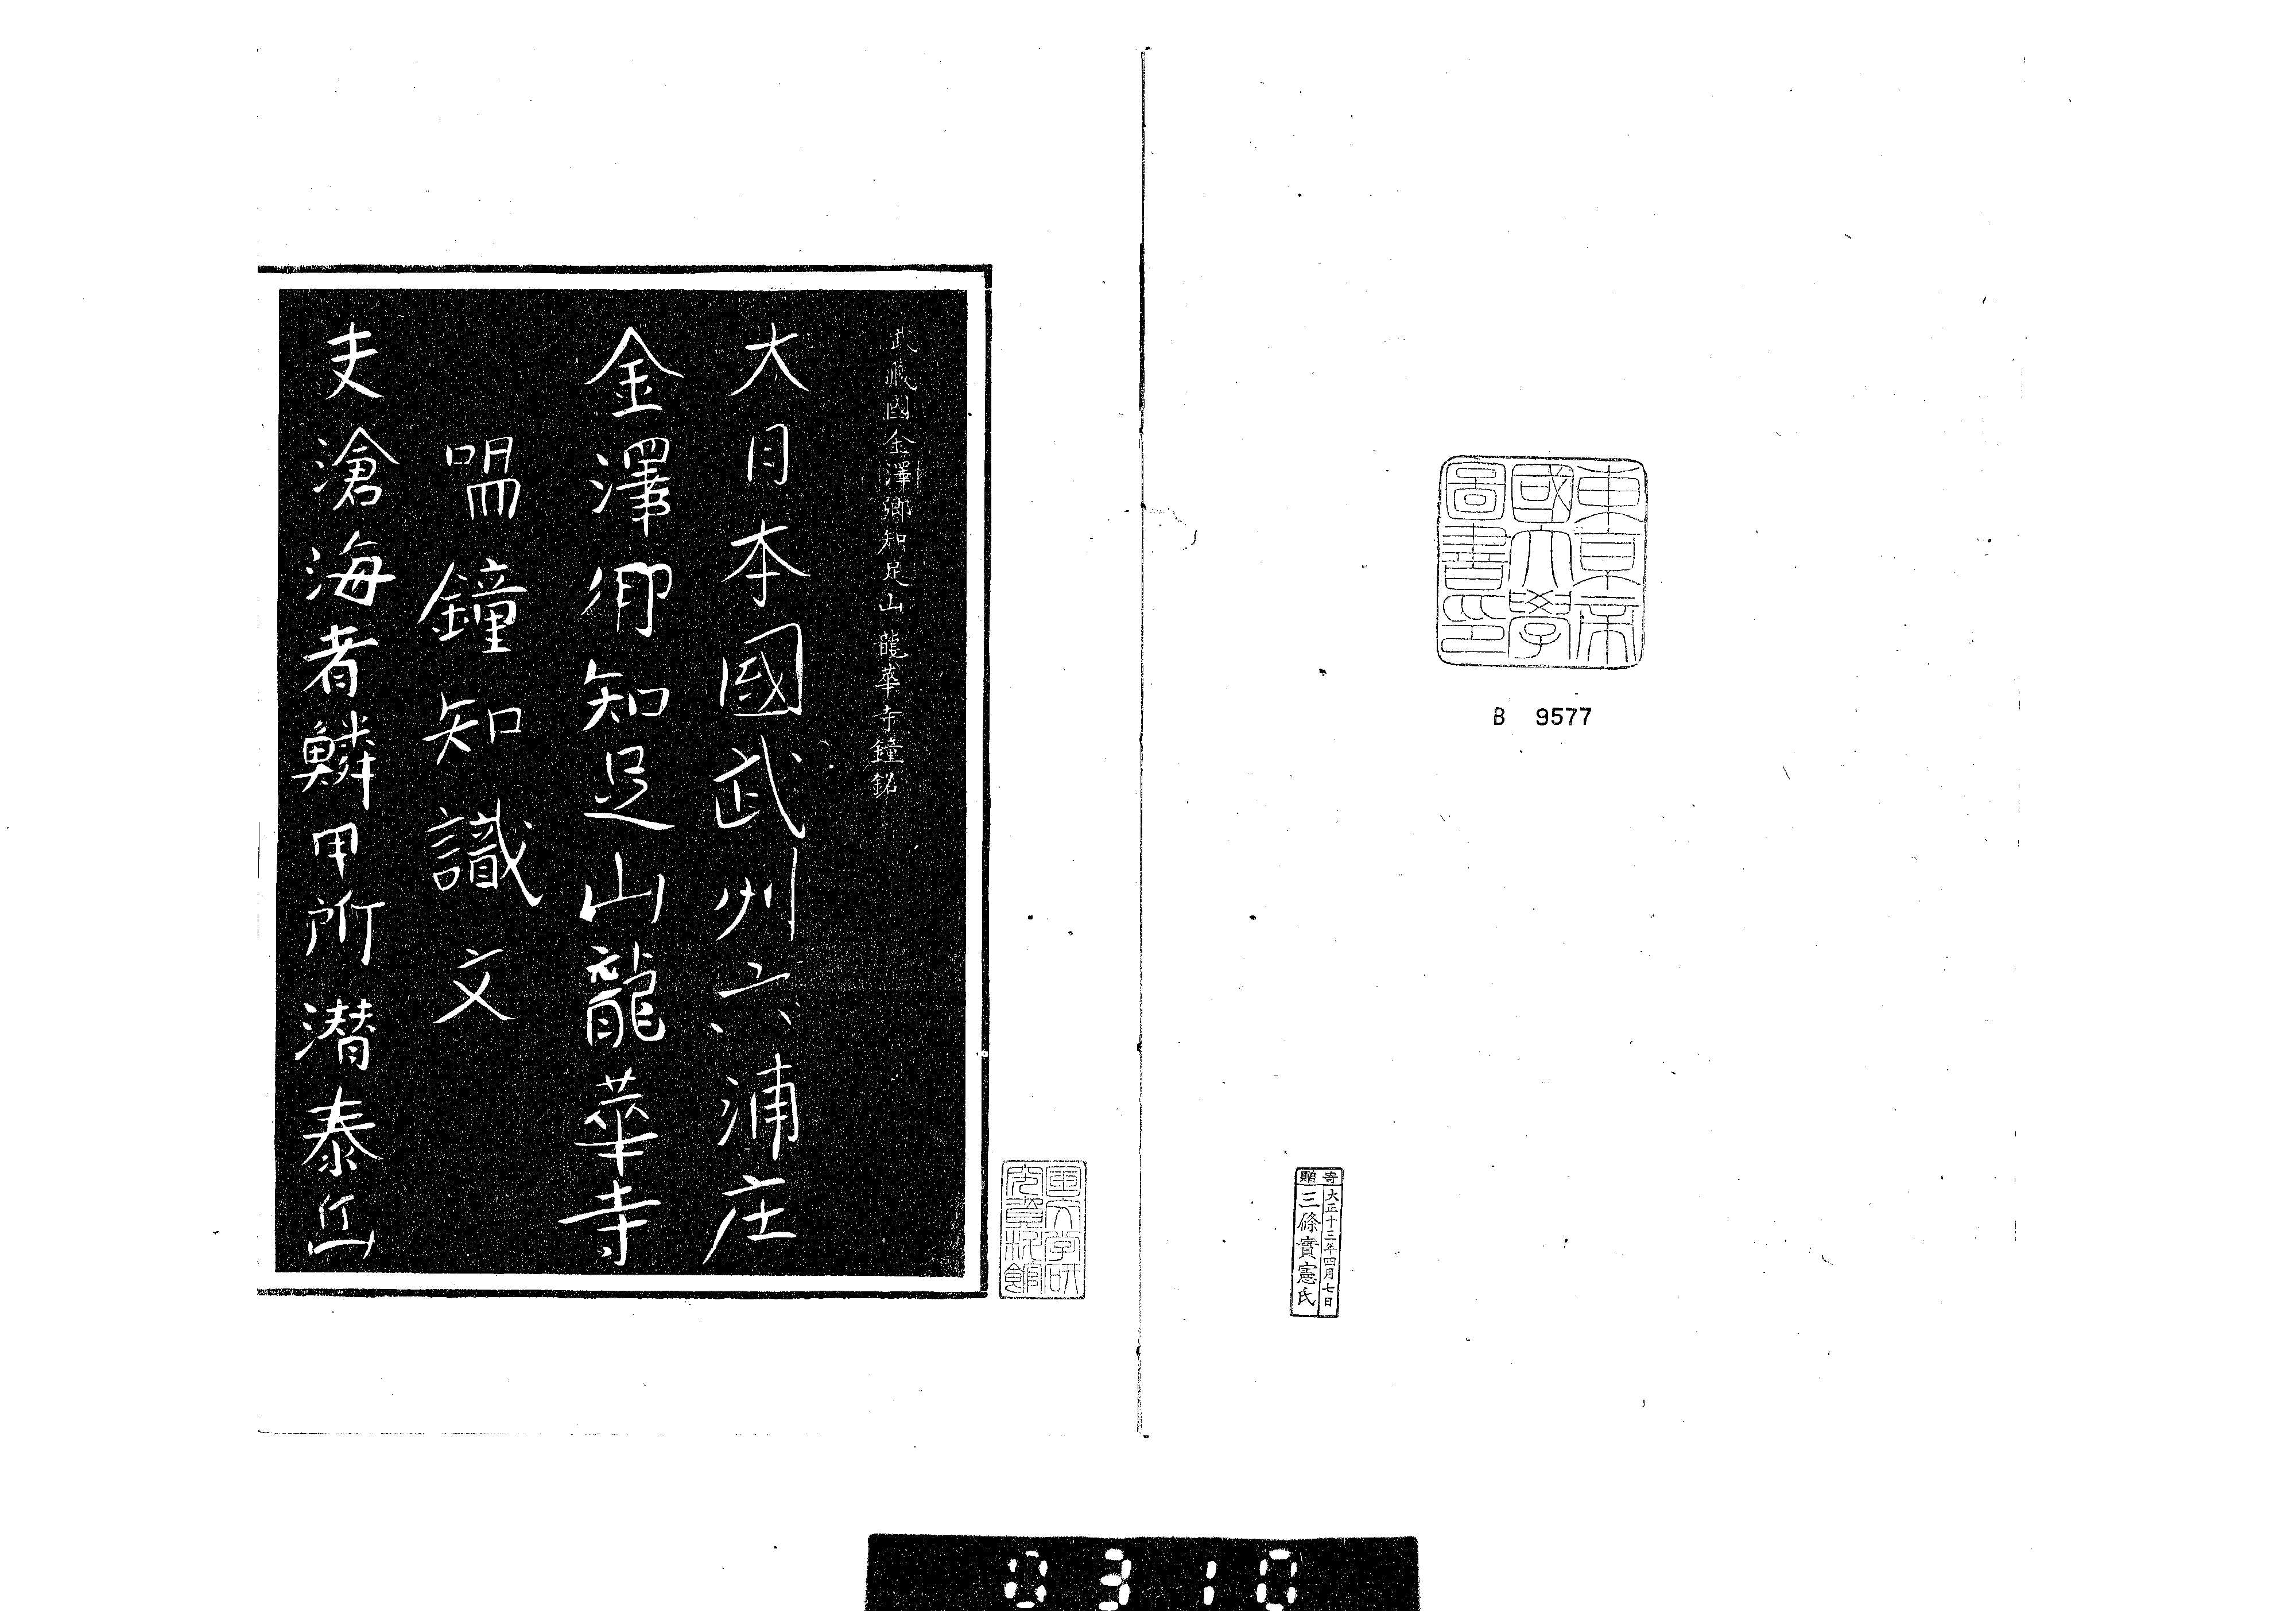 東京帝
國大學
圖書印
B 9577
寄贈
大正十三年四月七日
三條實憲氏
國文学研
究資料館
武蔵國金澤郷知足山龍華寺鐘銘
大日本國武州六浦庄
金澤郷知足山龍華寺
鐘知識文
夫滄海者鱗甲所潜泰岳
0310